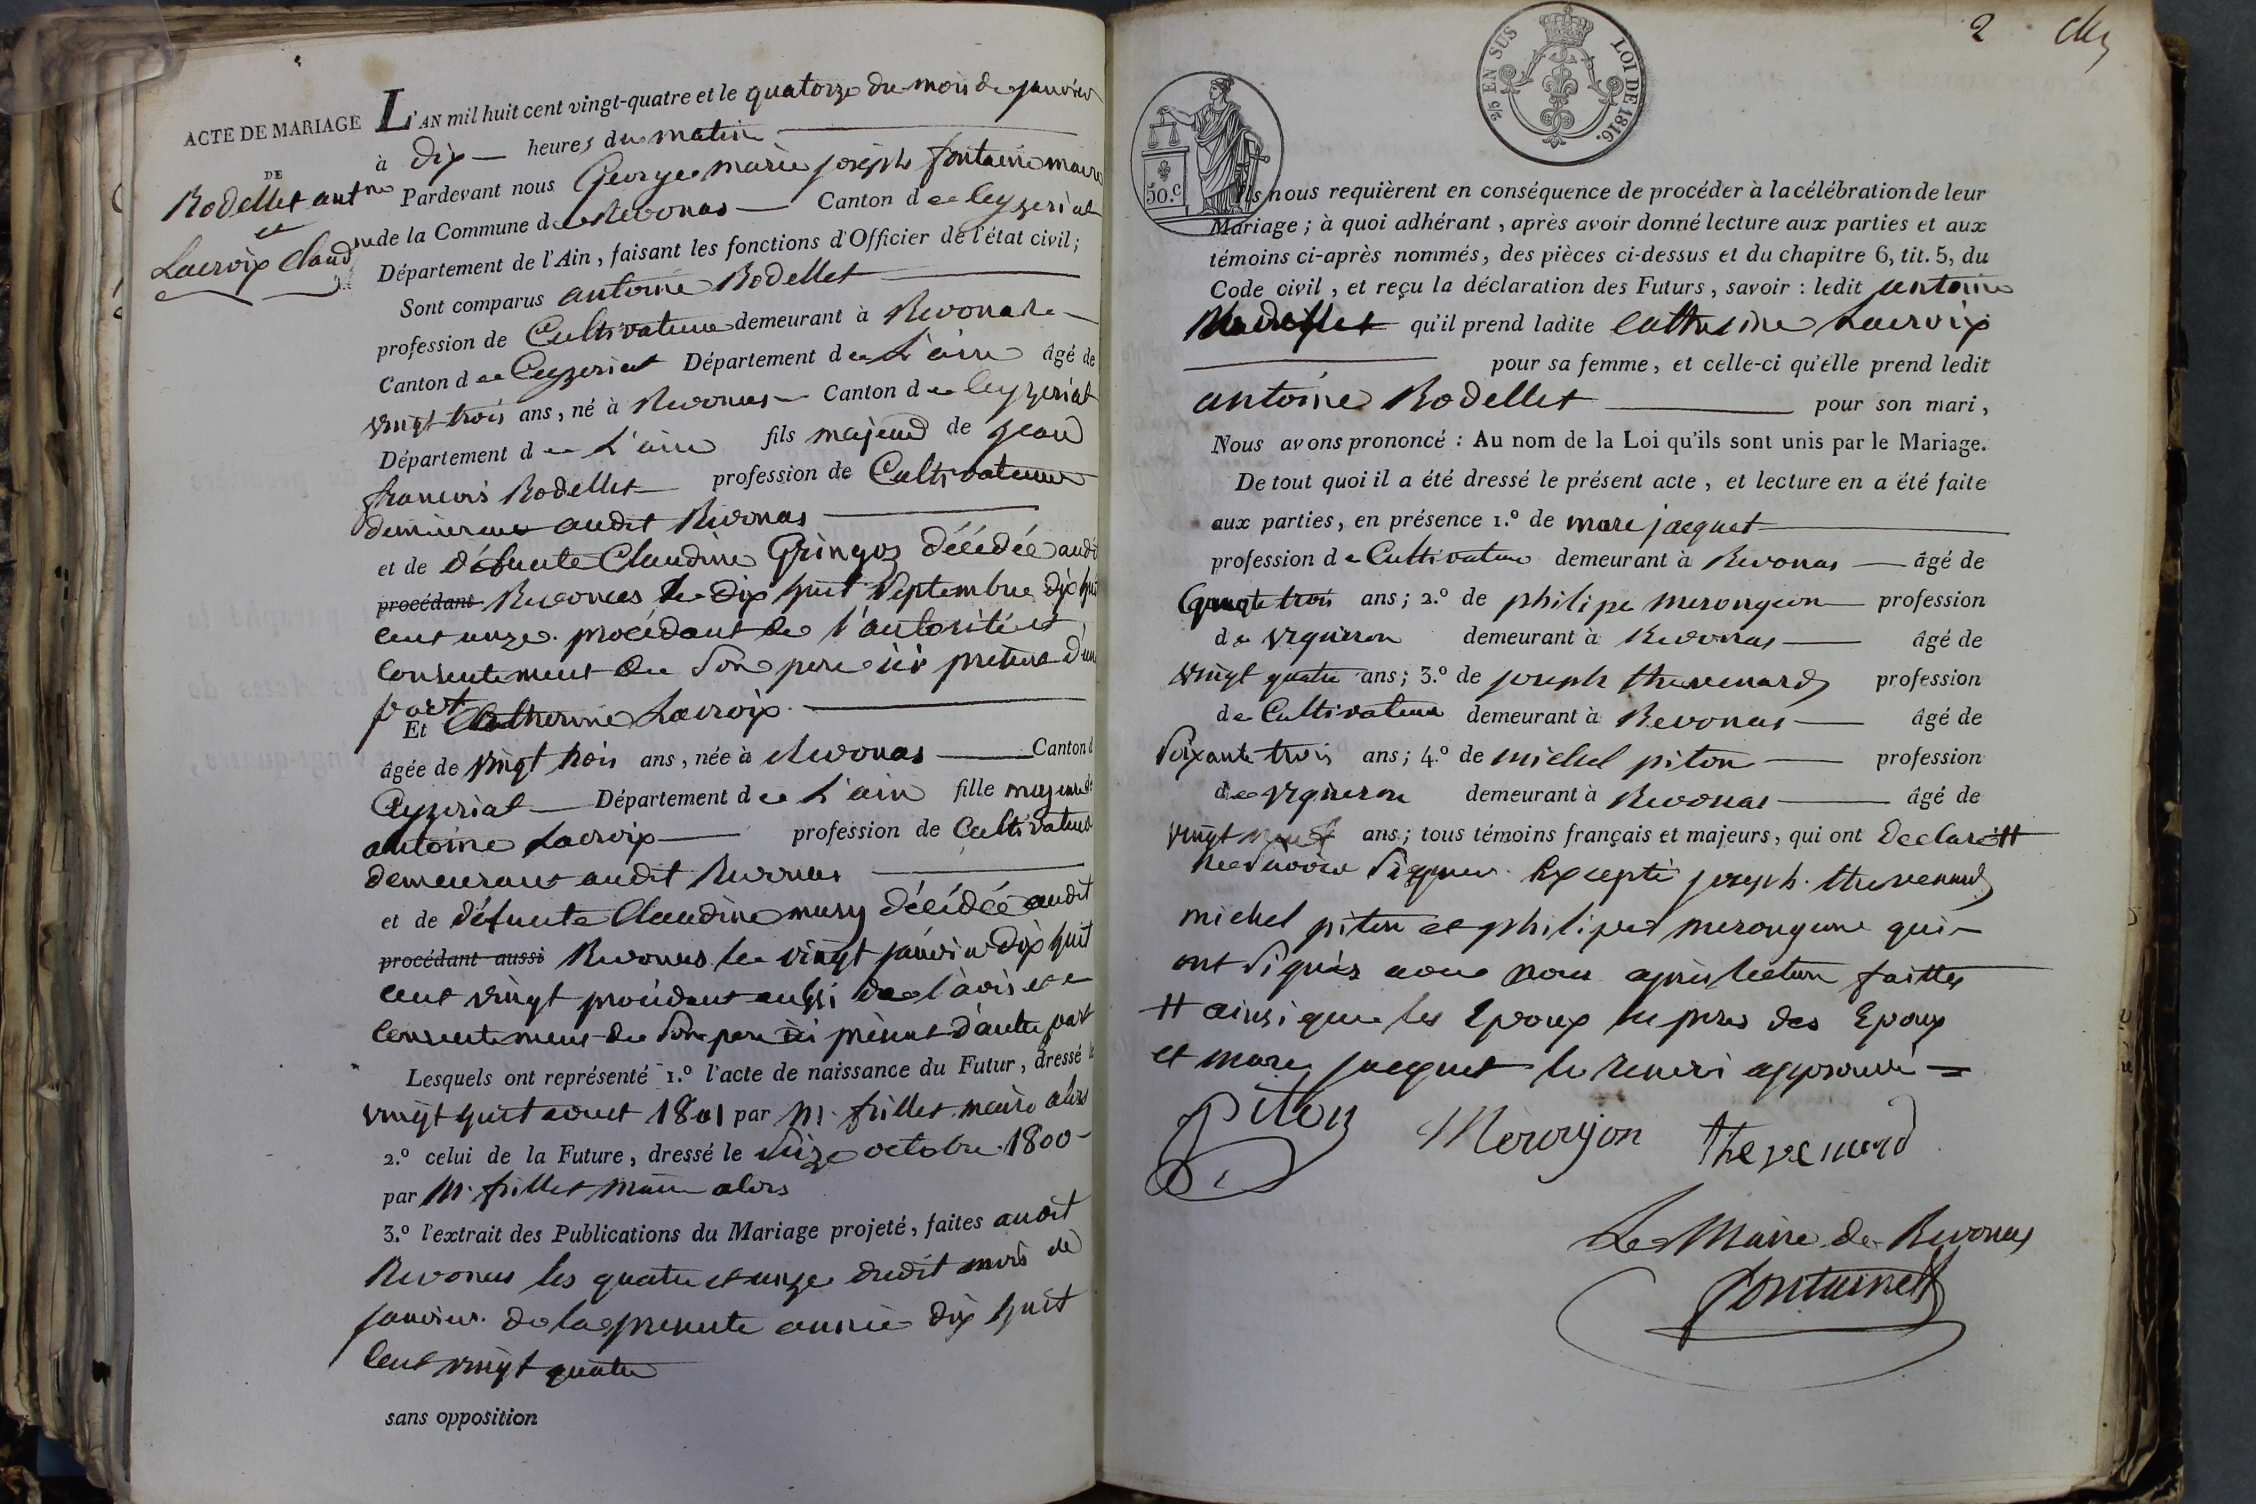 ACTE DE MARIAGE
DE
Rodellet antne
et
Lacroix Claudne
L'AN mil huit cent vingt-quatre et le quatorze du mois de janvier
à dix heures du matin
Pardevant nous George marie joseph fontaine maire
de la Commune de Revonas Canton de Ceyzeriat
Département de l'Ain, faisant les fonctions d'Officier de l'état civil;
Sont comparus antoine Rodellet
profession de Cultivateur demeurant à Revonas
Canton de Ceyzeriat Département de L'ain âgé de
vingt trois ans, né à Revonas Canton de Ceyzeriat
Département de L'ain fils majeur de jean
francois Rodellet profession de Cultivateur
demeurant audit Revonas
et de défunte Claudine Gringoz décédée audit
procédant Revonas le dix huit Septembre dix huit
cent onze procédant de l'autorité et
consentement de Son pere ici présent d'une
part
Et Catherine Lacroix
âgée de vingt trois ans, née à Revonas Canton d
Ceyzeriat Département de L'ain fille majeure de
antoine Lacroix profession de Cultivateur
demeurant audit Revonas
et de défunte Claudine mury décédée audit
procédant aussi Revonas le vingt janvier dix huit
cent vingt procédant aussi de l'avis et
consentement de Son pere ici présent d'autre part
Lesquels ont représenté 1.º l'acte de naissance du Futur, dressé le
vingt huit aout 1801 par M. frillet maire alors
2.º celui de la Future, dressé le Seize octobre 1800
par M. frillet maire alors
3.º l'extrait des Publications du Mariage projeté, faites audit
Revonas les quatre et onze dudit mois de
janvier de la présente année dix huit
cent vingt quatre
sans opposition
2
2/5 EN SUS LOI DE 1816.
50.c
Ils nous requièrent en conséquence de procéder à la célébration de leur
Mariage; à quoi adhérant, après avoir donné lecture aux parties et aux
témoins ci-après nommés, des pièces ci-dessus et du chapitre 6, tit. 5, du
Code civil, et reçu la déclaration des Futurs, savoir : ledit antoine
Rodellet qu'il prend ladite Catherine Lacroix
pour sa femme, et celle-ci qu'elle prend ledit
antoine Rodellet pour son mari,
Nous avons prononcé : Au nom de la Loi qu'ils sont unis par le Mariage.
De tout quoi il a été dressé le présent acte, et lecture en a été faite
aux parties, en présence 1.º de marc jacquet
profession de Cultivateur demeurant à Revonas âgé de
trois ans; 2.º de philipe merongeon profession
de vigneron demeurant à Revonas âgé de
vingt quatre ans; 3.º de joseph thevenard profession
de Cultivateur demeurant à Revonas âgé de
Soixante trois ans; 4.º de michel piton profession
de vigneron demeurant à Revonas âgé de
vingt neuf ans; tous témoins français et majeurs, qui ont declaré #
ne Savoir Signer Excepté joseph thevenard
michel piton et philipe merongeon qui
ont Signés avec nous après lecture faitte
# ainsi que les Epoux les peres des Epoux
et marc jacquet le renvoi approuvé =
Piton Meronjon thevenard
Le Maire de Revonas
fontaine